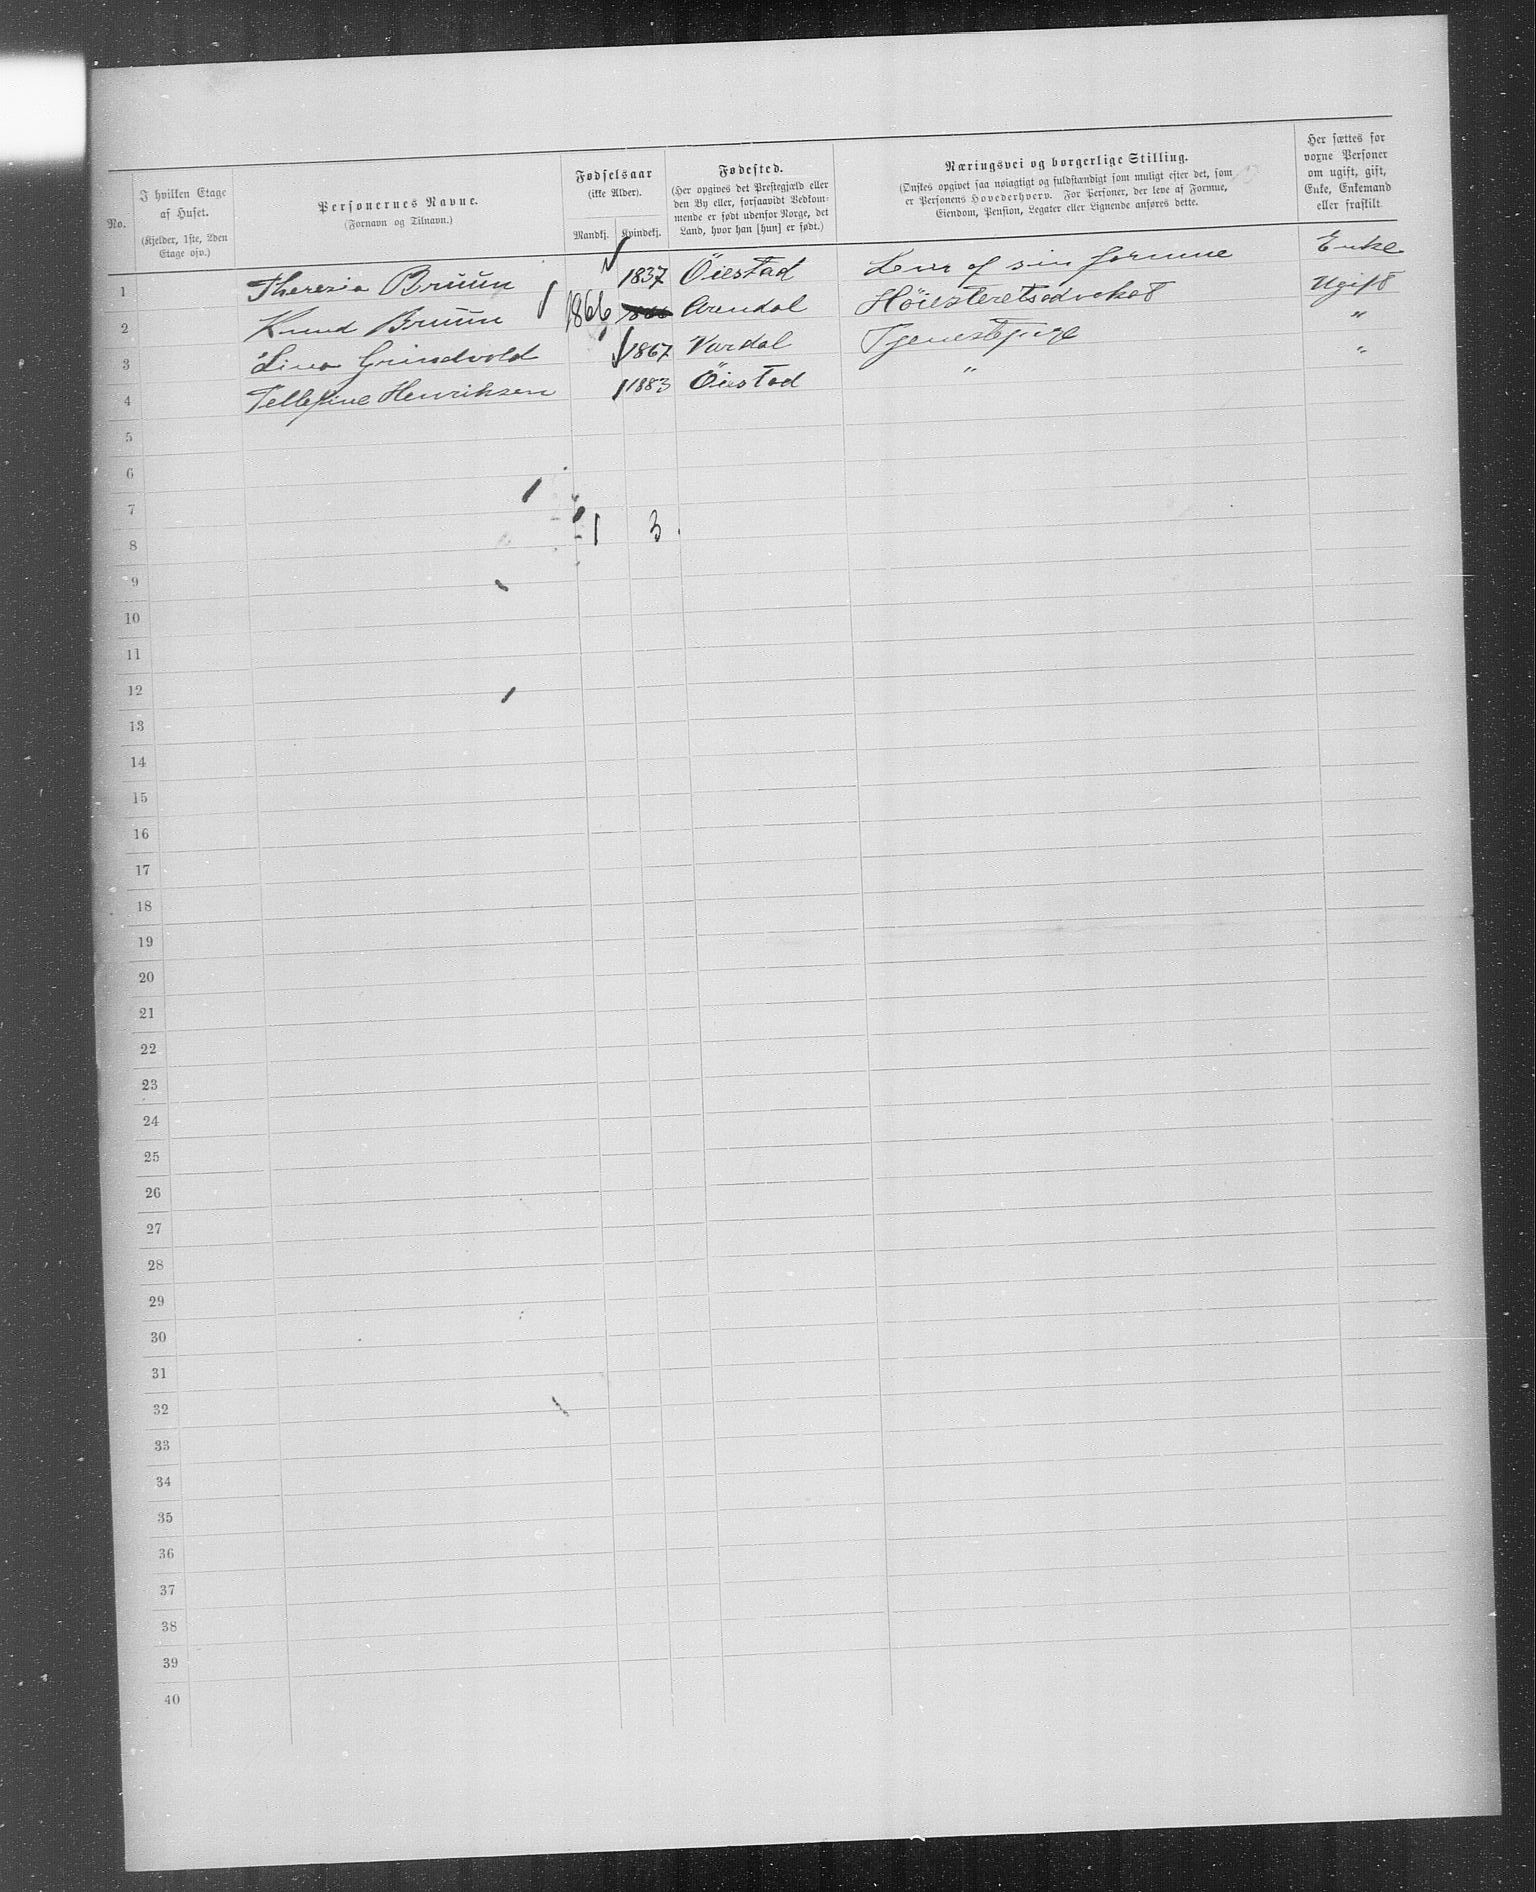 No.
I hvilken Etage af Huset.
(Kjelder, 1ste, 2den Etage osv.)
Personernes Navne.
(Fornavn og Tilnavn.)
Fødselsaar
(ikke Alder).
Mandkj. Kvindekj.
Fødested.
(Her opgives det Prestegjæld eller
den By eller, forsaavidt Vedkom-
mende er født udenfor Norge, det
Land, hvor han [hun] er født.)
Næringsvei og borgerlige Stilling.
(Ønskes opgivet saa nøiagtigt og fuldstændigt som muligt efter det, som
er Personens Hovederhverv. For Personer, der leve af Formue,
Eiendom, Pension, Legater eller Lignende anføres dette.
Her sættes for
voxne Personer
om ugift, gift,
Enke, Enkemand
eller fraskilt
1 Theresia Bruun 1837 Öiestad Lever af sin formue Enke
2 Knud Bruun 1866 Arendal Höiesteretsadvokat Ugift
3 Lina Grindvold 1867 Vardal Tjenestepige "
4 Tellefine Henriksen 1883 Öiestad " "
5
6
7
8 1 3
9
10
11
12
13
14
15
16
17
18
19
20
21
22
23
24
25
26
27
28
29
30
31
32
33
34
35
36
37
38
39
40